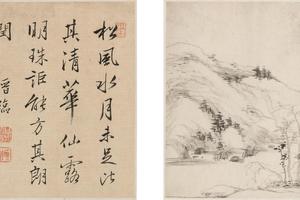 松風水月未足比
其清華仙露
明珠詎能方其朗
閏
臨